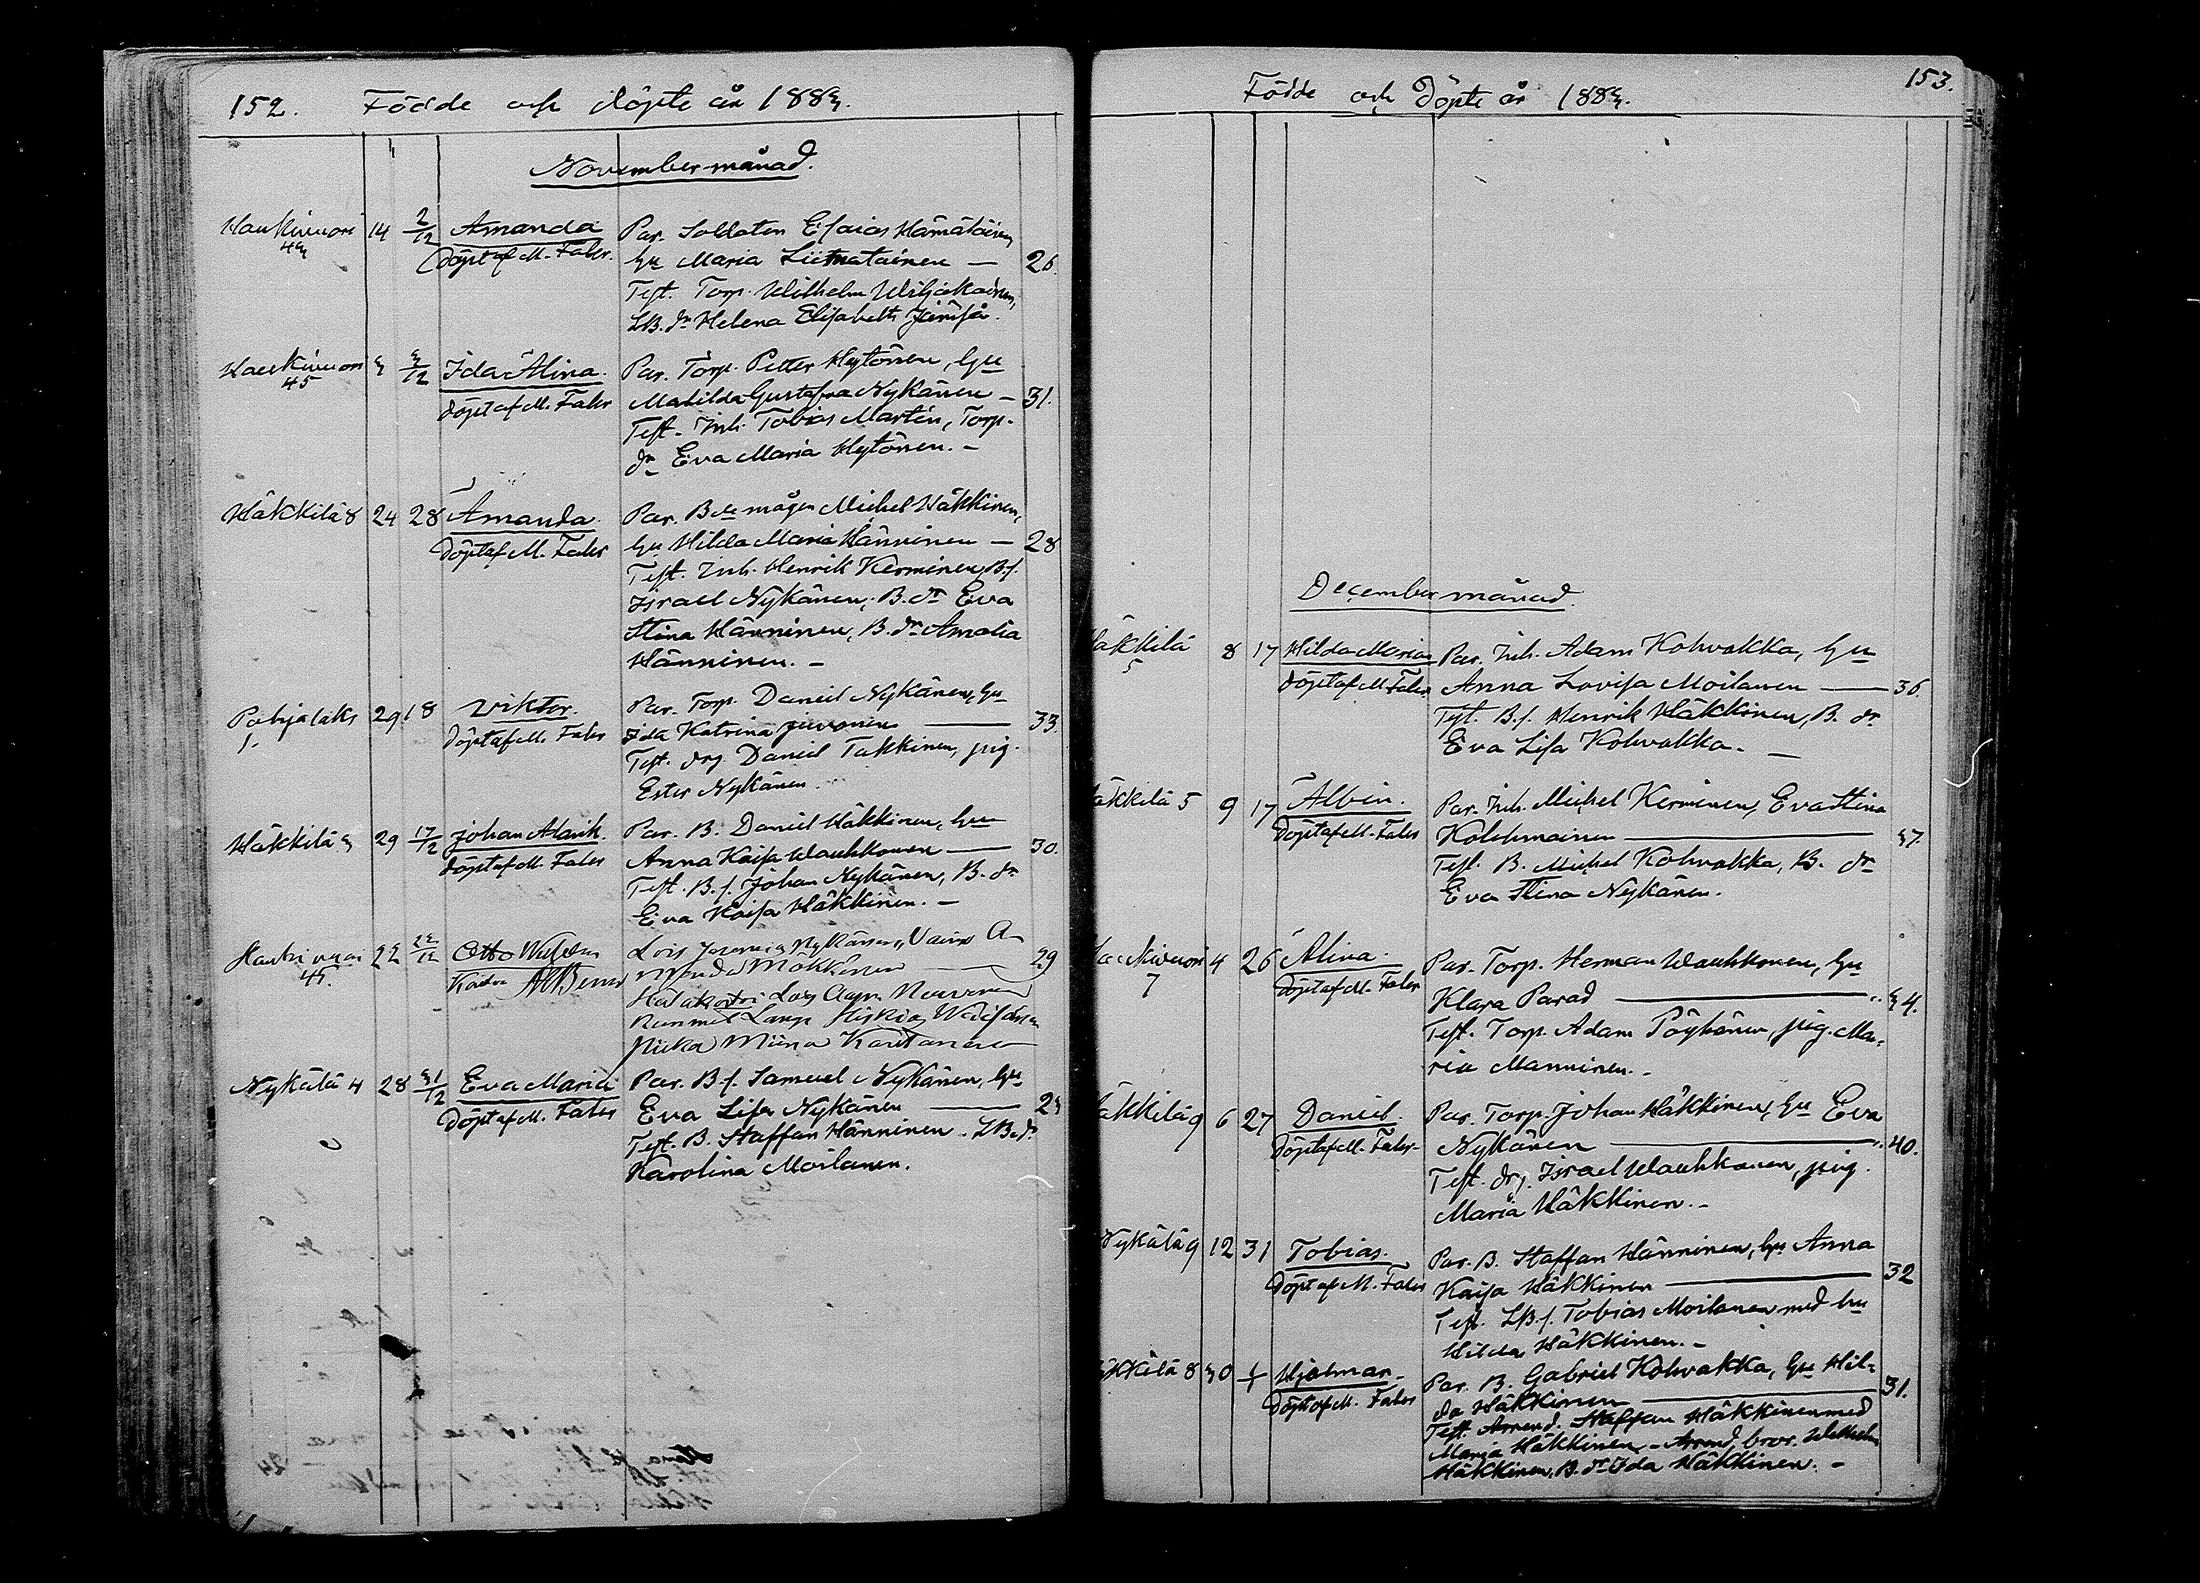 152. Födde och döpte år 1883.
November månad.
Haukivuori 14 2/12 Amanda Par. Soldaten Esaias Hämäläinen,
43 Döpt af M. Faler. hu Maria Liimatainen — 26.
Test. Torp. Wilhelm Wiljakainen,
LB. dr Helena Elisabeth Jäntfå.
Haukivuori 3 3/12 Ida Alina. Par. Torp. Petter Hytönen, hu
45 döpt af M. Faler Matilda Gustafva Nykänen — 31.
Test. Inh. Tobias Martin, Torp.
dr Eva Maria Hytönen. —
Häkkilä 8 24 28 Amanda. Par. B:de mågen Michel Häkkinen,
Döpt af M. Faler hu Hilda Maria Hänninen — 28
Test. Inh. Henrik Kerminen, B.f.
Israel Nykänen, B. dr Eva
Stina Hänninen, B. dr Amalia
Hänninen. —
Pohjalaks 29 18 Viktor. Par. Torp. Daniel Nykänen, hu
1. Döpt af M. Faler Ida Katrina Juvonen — 33.
Test. drg. Daniel Takkinen, pig.
Ester Nykänen.
Häkkilä 3 29 17/12 Johan Alarik. Par. B. Daniel Häkkinen, hu
döpt af M. Faler Anna Kaisa Wauhkonen — 30.
Test. B.f. Johan Nykänen, B. dr
Eva Kaisa Häkkinen. —
Haukivuori 22 Otto Lois Nykänen, Vaimo A-
45. manda — 29
Lois
Lange
Piika Miina
Nykälä 4 28 31/12 Eva Maria Par. B.f. Samuel Nykänen, hu
Döpt af M. Faler Eva Lisa Nykänen — 23
Test. B. Staffan Hänninen. LB. dr
Karolina Moilanen.
Födde och Döpte år 1883. 153.
December månad.
Häkkilä 8 17 Hilda Maria Par. Inh. Adam Kohvakka, hu
5 döpt af M. Faler Anna Lovisa Moilanen — 36.
Test. B.f. Henrik Häkkinen, B. dr
Eva Lisa Kohvakka. —
Häkkilä 5 9 17 Albin. Par. Inh. Michel Kerminen, Eva Stina
Döpt af M. Faler Kolehmainen — 37.
Test. B. Michel Kohvakka, B. dr
Eva Stina Nykänen.
Haukivuori 4 26 Alina. Par. Torp. Herman Wauhkonen, hu
7 Döpt af M. Faler Klara Parad — 34.
Test. Torp. Adam Pöyhönen, pig. Ma-
ria Manninen. —
Häkkilä 9 6 27 Daniel. Par. Torp. Johan Häkkinen, hu Eva
Döpt af M. Faler. Nykänen — 40.
Test. drg. Israel Wauhkonen, pig.
Maria Häkkinen. —
Nykälä 9 12 31 Tobias. Par. B. Staffan Hänninen, hu Anna
Döpt af M. Faler Kaisa Häkkinen — 32
Test. LB.f. Tobias Moilanen med hu
Hilda Häkkinen. —
Häkkilä 8 30 1/1 Hjalmar. Par. B. Gabriel Kohvakka, hu Hil-
Döpt af M. Faler da Häkkinen — 31.
Test. Arrend. Staffan Häkkinen med
Maria Häkkinen — Arrend. bror. Wilhelm
Häkkinen, B. dr Ida Häkkinen. —